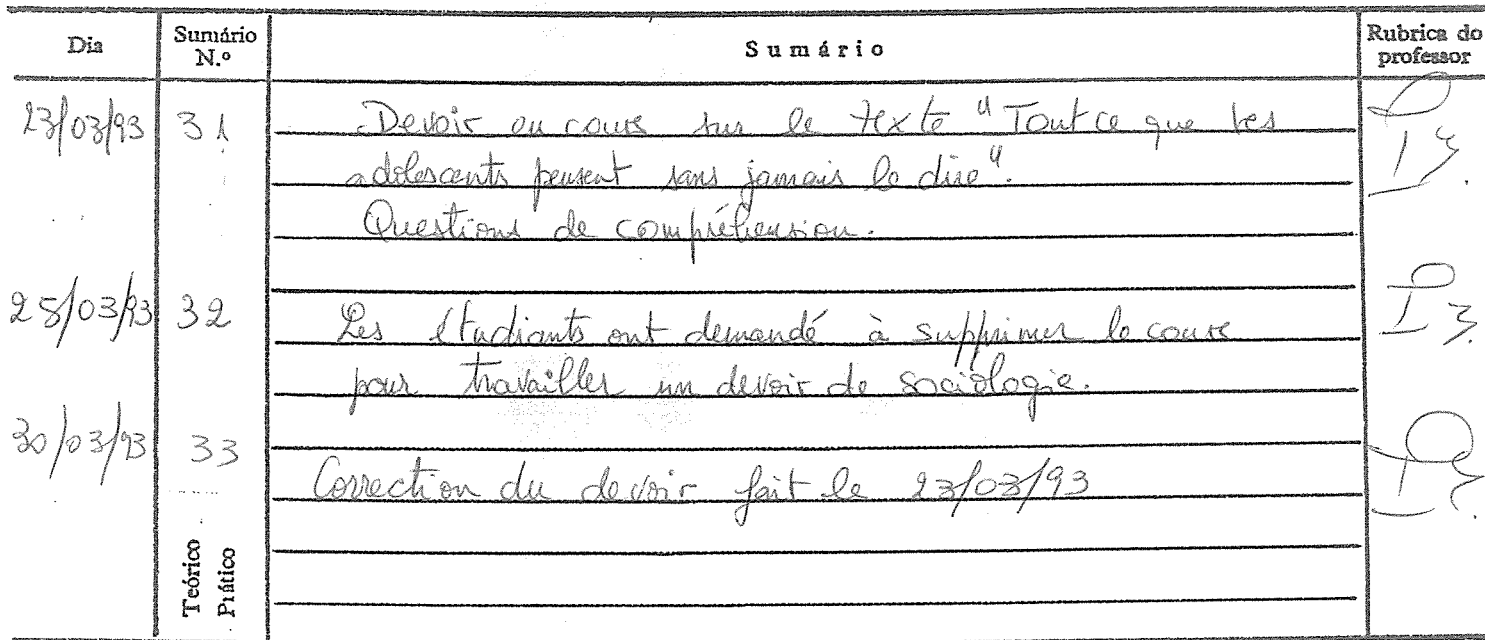 Dia Sumário N.º Sumário Rubrica do professor
23/03/93 31 Devoir ou cours sur le texte "Tout ce que les
adolescents pensent sans jamais le dire".
Questions de compréhension.
25/03/93 32 Les étudiants ont demandé à supprimer le cours
pour travailler un devoir de sociologie.
30/03/93 33 Correction du devoir fait le 23/03/93
Teórico
Prático